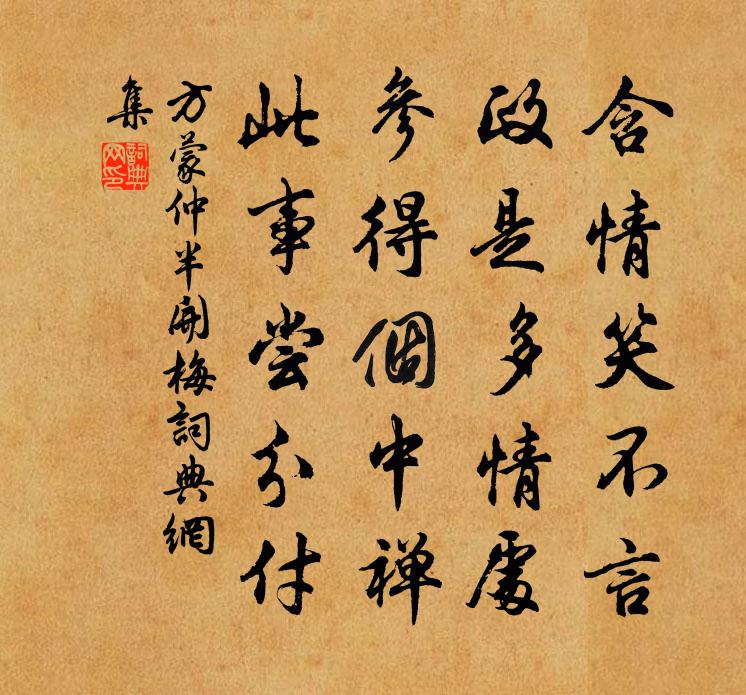 含情笑不言
政是多情處
參得個中禅
此事尝分付
方蒙仲半開梅詞典網
集
詞典
网印